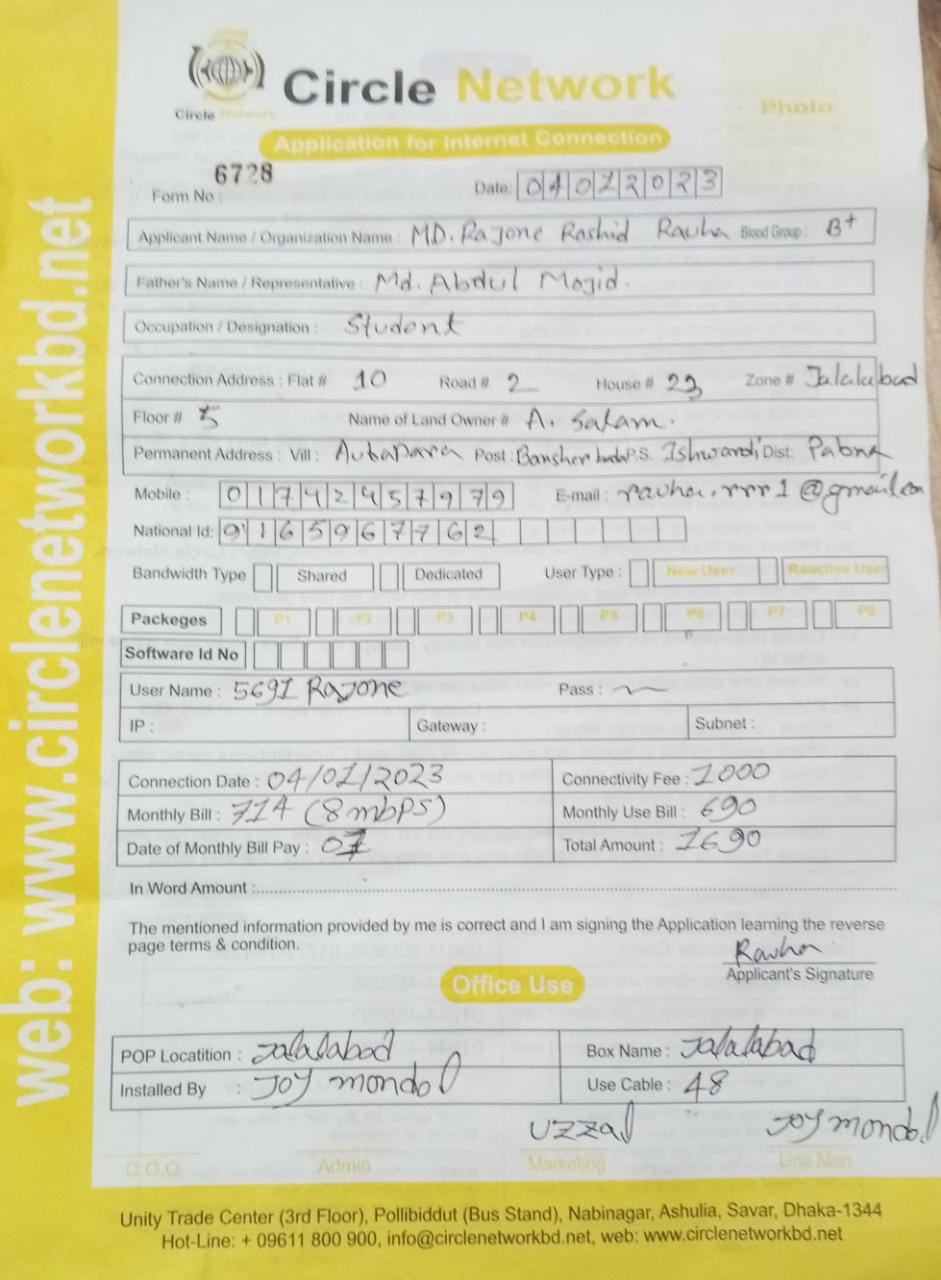 Circle Network
Circle Network
Photo
Application for Internet Connection
Form No : 6728
Date: 04012023
Applicant Name / Organization Name : MD. Rajone Rashid Rauha Blood Group : B+
Father's Name / Representative : Md. Abdul Mojid.
Occupation / Designation : Student
Connection Address : Flat # 10 Road # 2 House # 23 Zone # Jalalabad
Floor # 5 Name of Land Owner # A. Salam.
Permanent Address : Vill : Autapara Post : P.S. Ishwardi Dist: Pabna
Mobile : 01742457979 E-mail : rauha.rrr1@gmail.com
National Id: 9165967762
Bandwidth Type Shared Dedicated User Type : New User Reactive User
Packeges P1 P2 P3 P4 P5 P6 P7 P8
Software Id No
User Name : 5691 Rajone Pass :
IP : Gateway : Subnet :
Connection Date : 04/01/2023 Connectivity Fee : 1000
Monthly Bill : 714 (8 mbps) Monthly Use Bill : 690
Date of Monthly Bill Pay : 07 Total Amount : 1690
In Word Amount :
The mentioned information provided by me is correct and I am signing the Application learning the reverse
page terms & condition.
Rauha
Applicant's Signature
Office Use
POP Locatition : Jalalabad Box Name : Jalalabad
Installed By : Joy mondol Use Cable : 48
Uzzal Joy mondol
C.O.O Admin Marketing Line Man
Unity Trade Center (3rd Floor), Pollibiddut (Bus Stand), Nabinagar, Ashulia, Savar, Dhaka-1344
Hot-Line: + 09611 800 900, info@circlenetworkbd.net, web: www.circlenetworkbd.net
web: www.circlenetworkbd.net